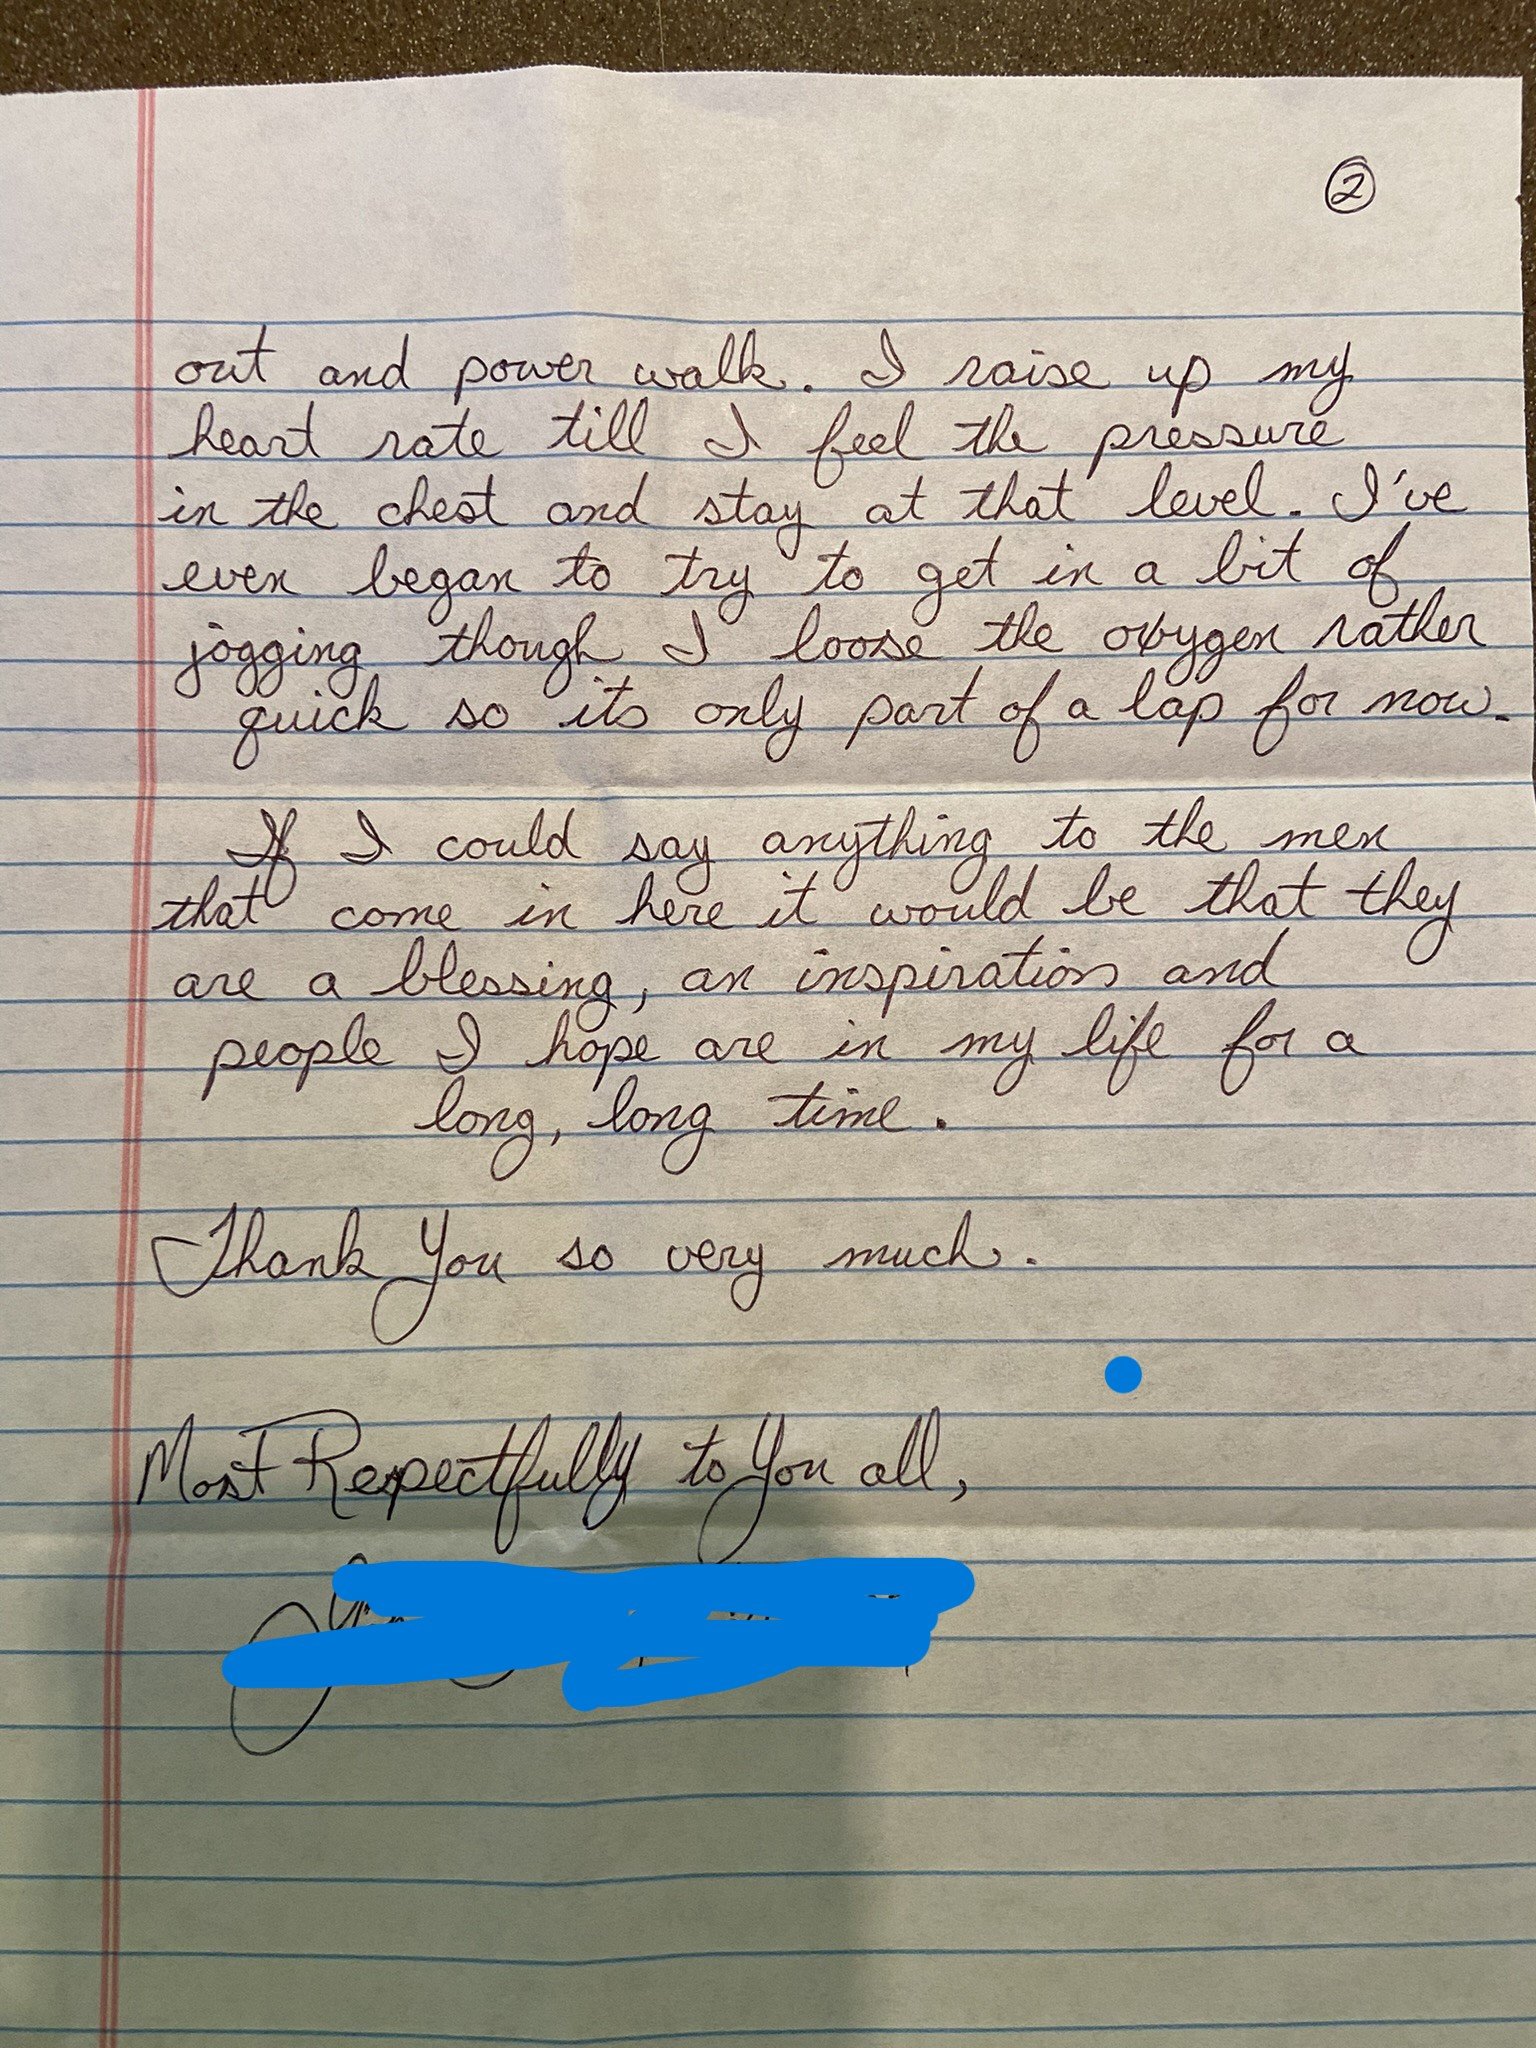 2
out and power walk. I raise up my
heart rate till I feel the pressure
in the chest and stay at that level. I've
even began to try to get in a bit of
jogging though I loose the oxygen rather
quick so its only part of a lap for now.
If I could say anything to the men
that come in here it would be that they
are a blessing, an inspiration and
people I hope are in my life for a
long, long time.
Thank You so very much.
Most Respectfully to You all,